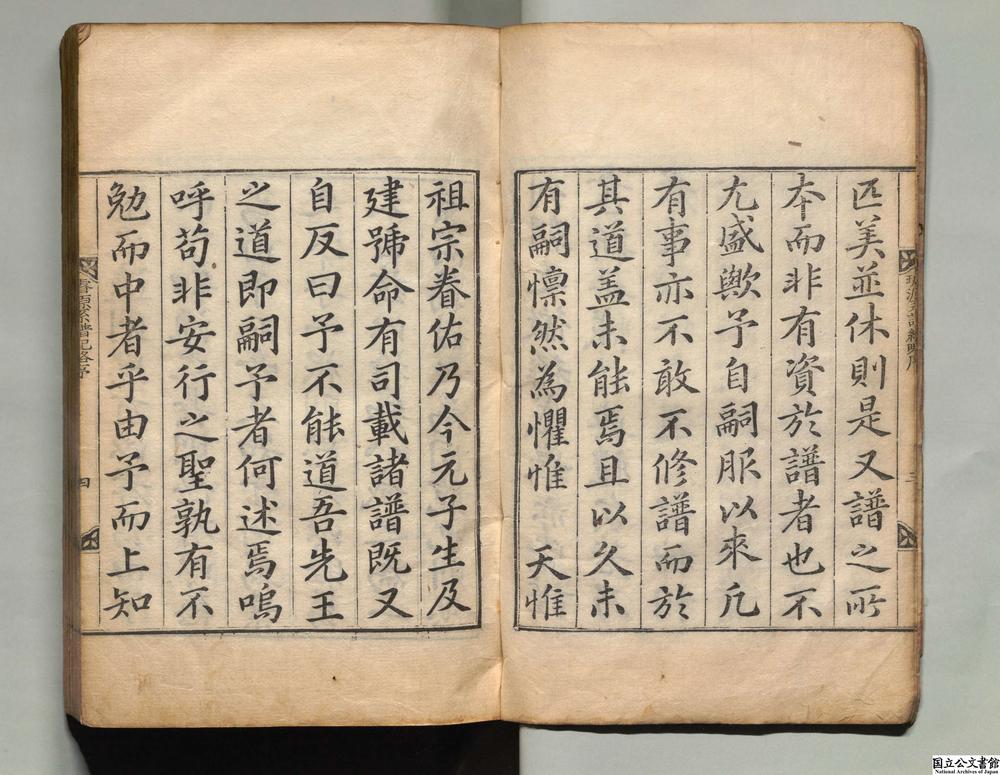 匹美並休則是又譜之所
本而非有資於譜者也不
尤盛歟予自嗣服以來凡
有事亦不敢不修譜而於
其道盖未能焉且以久未
有嗣懔然為懼惟 天惟
祖宗眷佑乃今元子生及
建號命有司載諸譜既又
自反曰予不能道吾先王
之道即嗣予者何述焉嗚
呼苟非安行之聖孰有不
勉而中者乎由予而上知
三
四
国立公文書館
National Archives of Japan